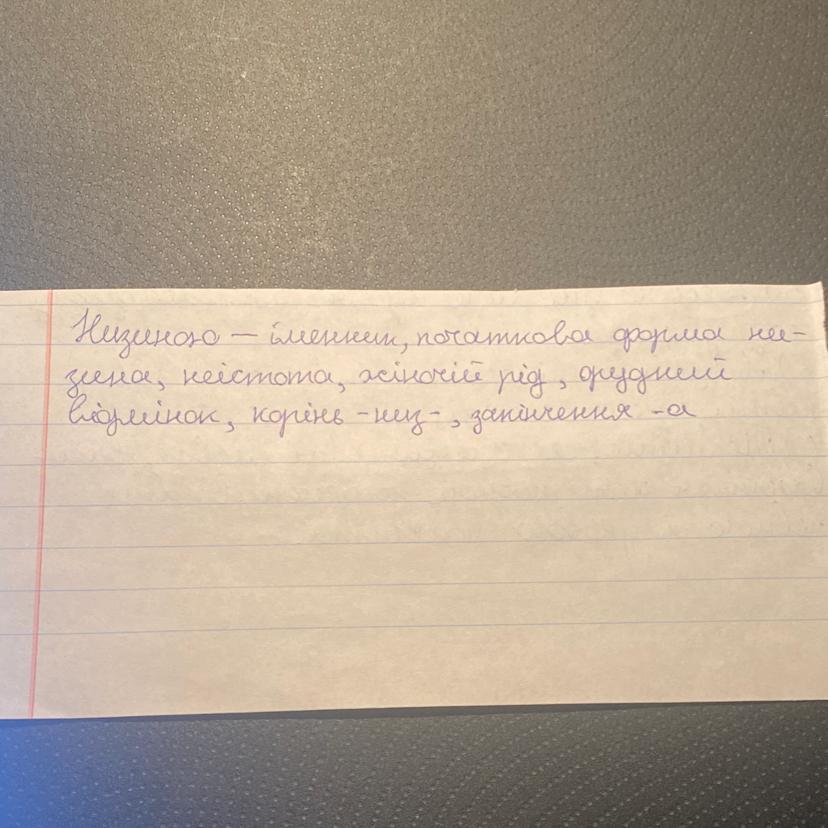 Низиною — іменник, початкова форма ни-
зина, неістота, жіночій рід, орудний
відмінок, корінь -низ-, закінчення -а